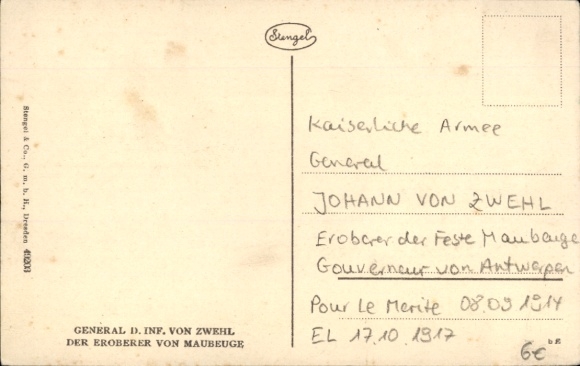 Stengel
Stengel & Co., G. m. b. H., Dresden 49203
Kaiserliche Armee
General
JOHANN VON ZWEHL
Eroberer der Feste Maubeuge
Gouverneur von Antwerpen
Pour Le Merite 08.09 1914
EL 17.10.1917
GENERAL D. INF. VON ZWEHL
DER EROBERER VON MAUBEUGE
6€